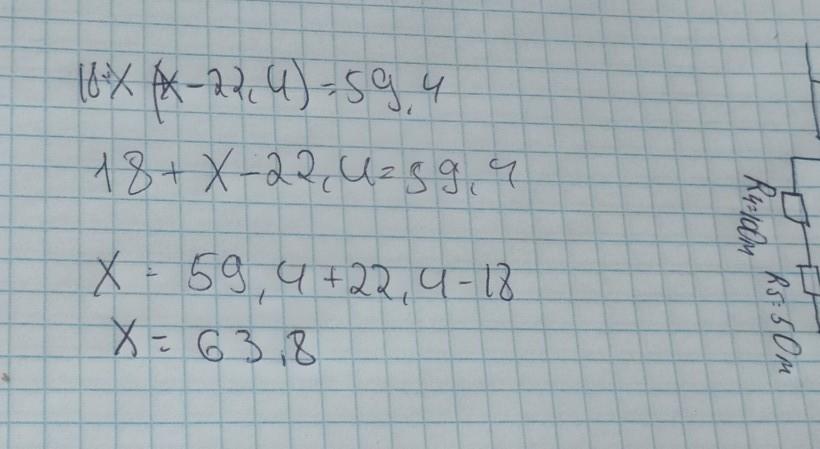 18+X (x-22,4)=59,4
18+X-22,4=59,4
X = 59,4+22,4-18
X = 63,8
R4=10Om
R5=5Om